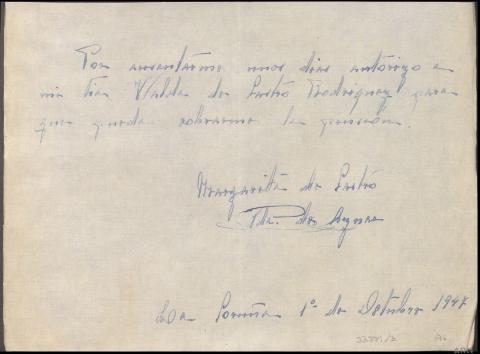 Por ausentarme unos dias autorizo a
mi tia Valda de Castro Rodriguez para
que pueda cobrarme la pensión.
Margarita de Castro
La Coruña 1º de Octubre 1947